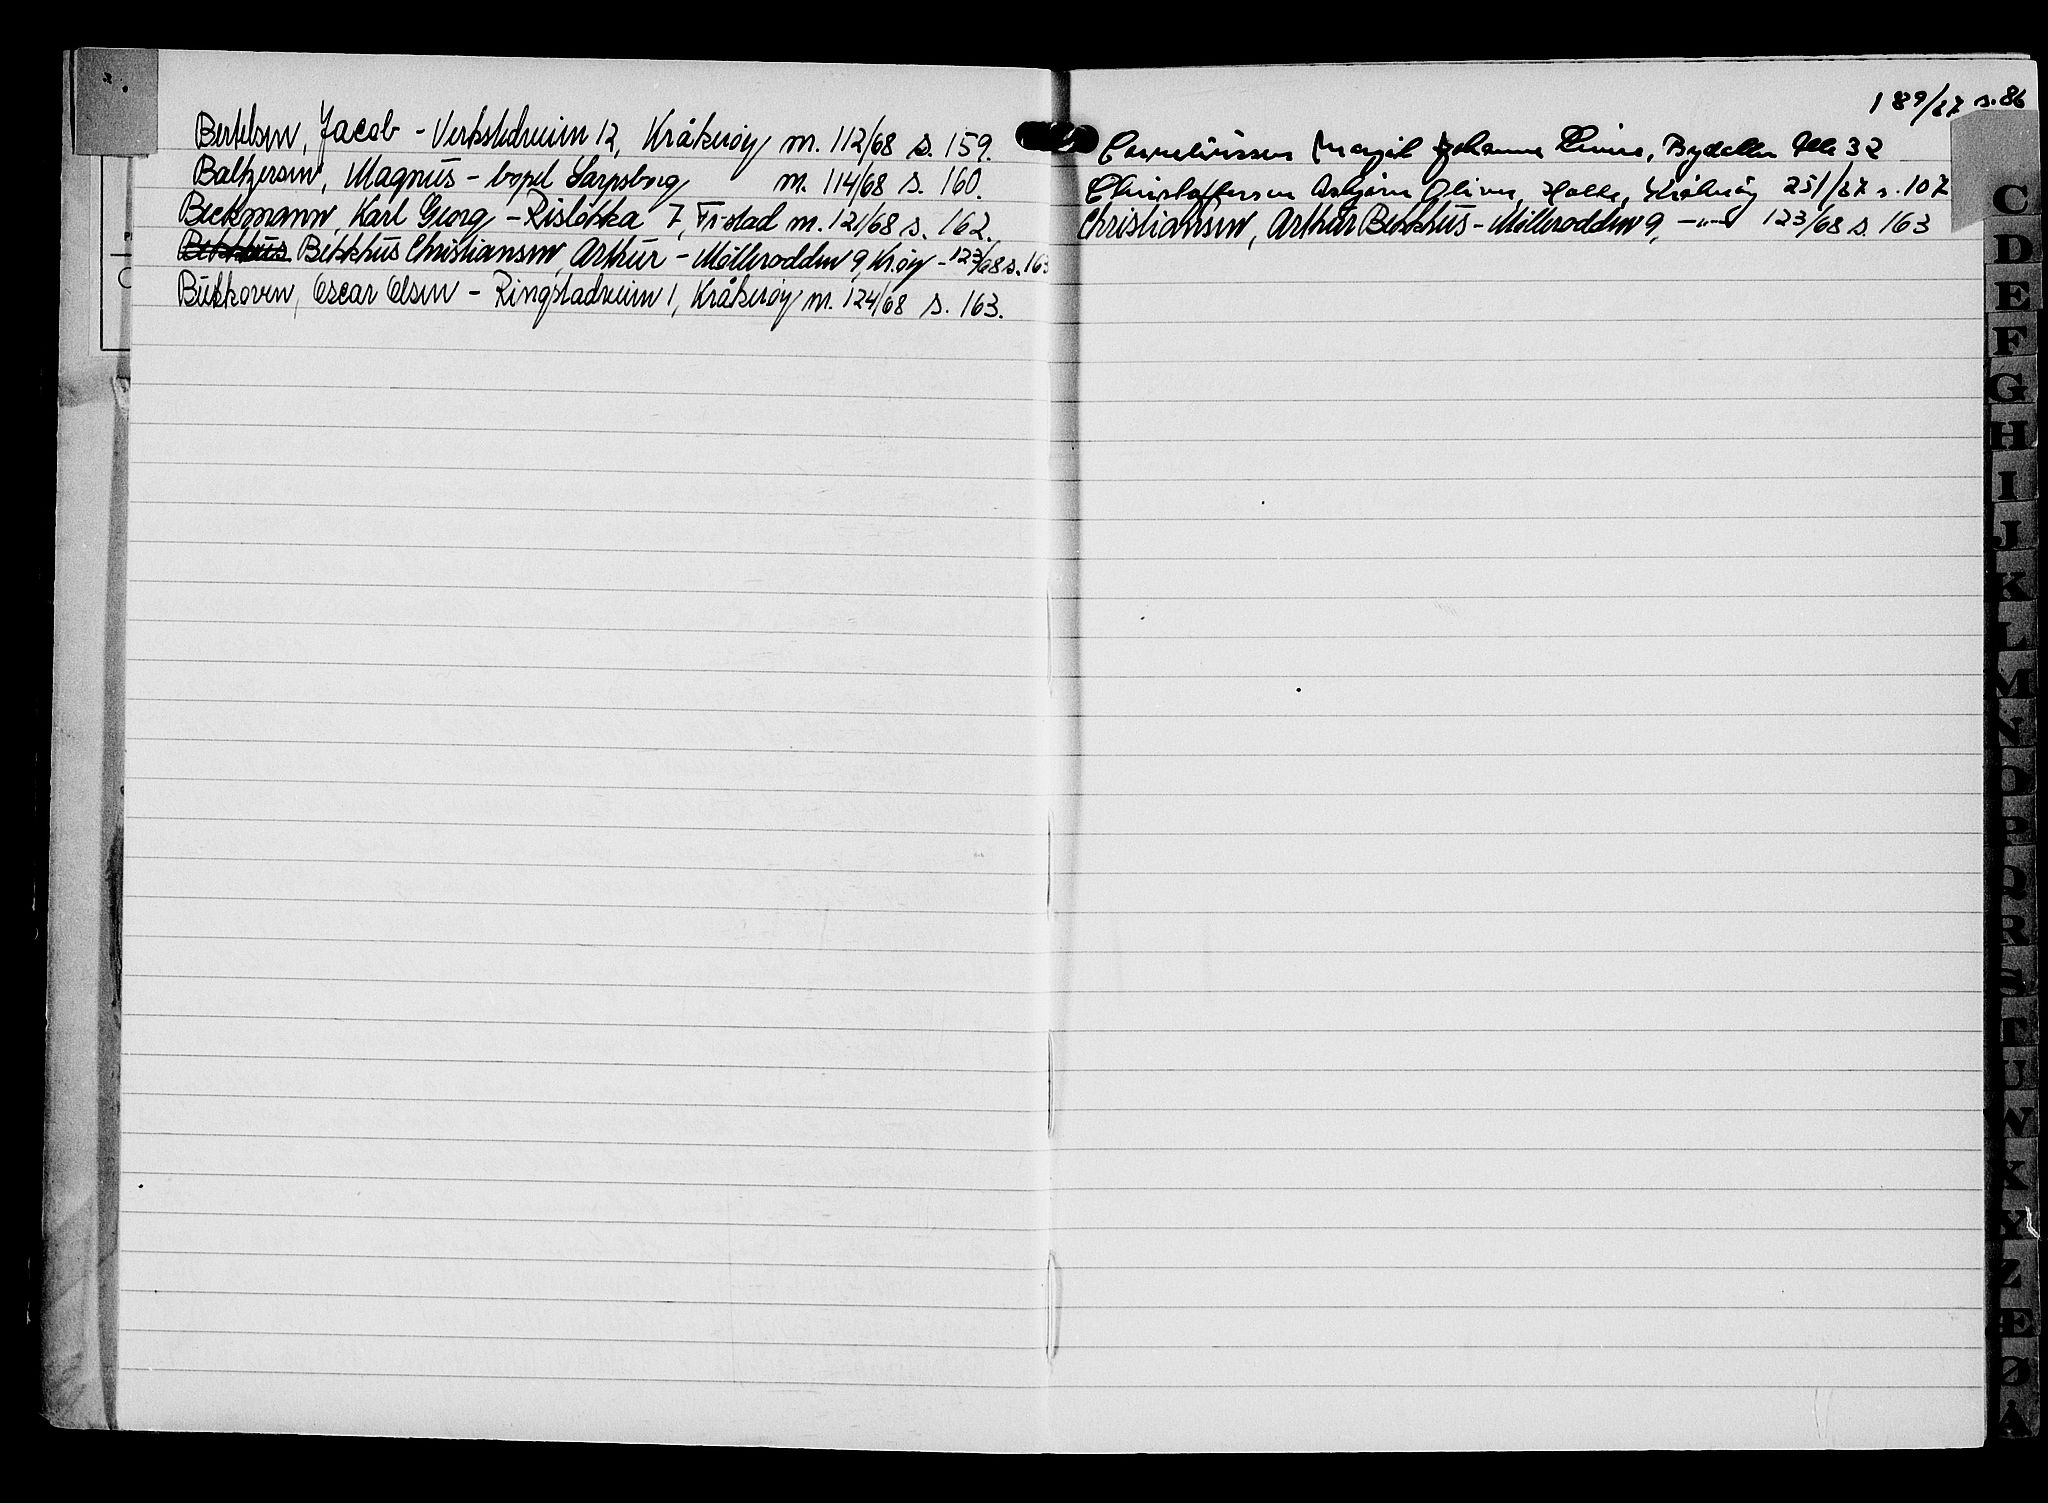 Bertelsen, Jacob - Verkstedveien 12, Kråkerøy m. 112/68 s. 159.
Baltzersen, Magnus - bopel Sarpsborg m. 114/68 s. 160.
Beckmann, Karl Georg - Risløkka 7, Fr.stad m. 121/68 s. 162.
Bekkhus Bekkhus Christiansen, Arthur - Møllerodden 9, Kr.øy - 123/68 s. 163
Bukkoven, Oscar Olsen - Ringstadveien 1, Kråkerøy m. 124/68 s. 163.
189/67 s. 86
Corneliussen Margit Johanne, Bydalen Alle 32
Christoffersen Asbjørn Oliver, Holte, Kråkerøy 251/67 s. 107
Christiansen, Arthur Bekkhus - Møllerodden 9, -"- 123/68 s. 163
C
D
E
F
G
H
I
J
K
L
M
N
O
P
Q
R
S
T
U
V
X
Y
Z
Æ
Ø
Å